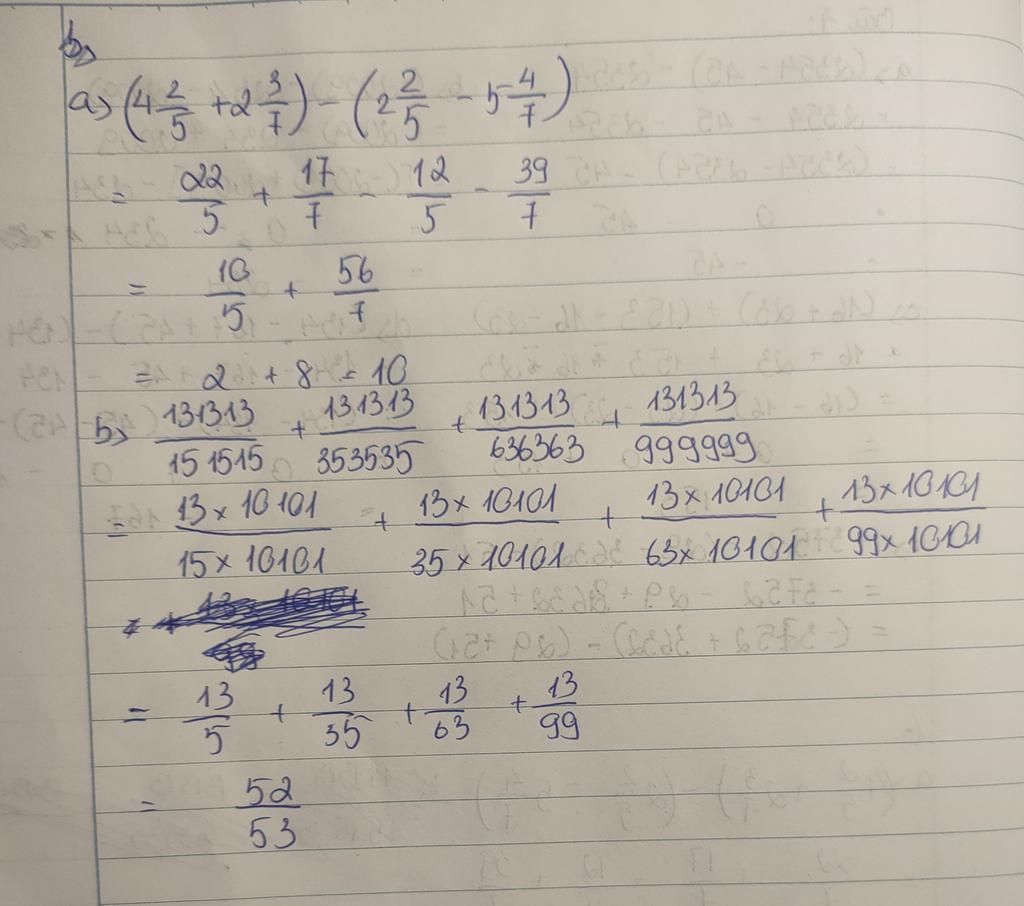 b>
a> (4 2/5 + 2 3/7) - (2 2/5 - 5 4/7)
= 22/5 + 17/7 - 12/5 - 39/7
= 10/5 + 56/7
= 2 + 8 = 10
b> 131313/151515 + 131313/353535 + 131313/636363 + 131313/999999
= 13 x 10101/15 x 10101 + 13 x 10101/35 x 10101 + 13 x 10101/63 x 10101 + 13 x 10101/99 x 10101
= 13/5 + 13/35 + 13/63 + 13/99
= 52/53